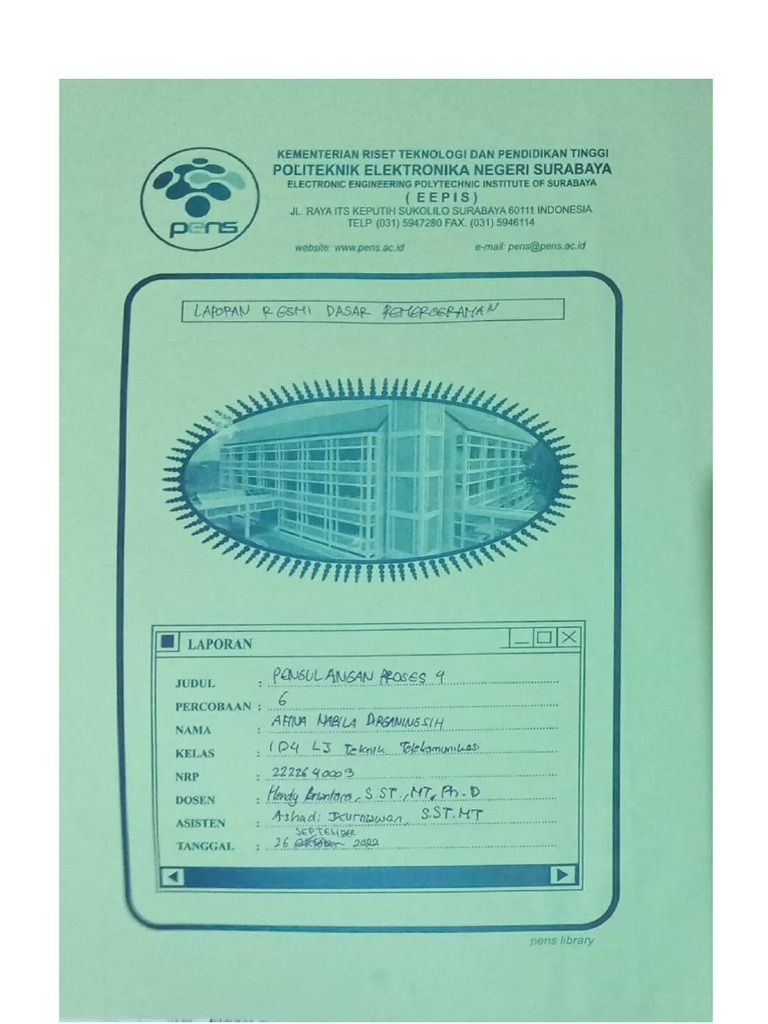 pens
KEMENTERIAN RISET TEKNOLOGI DAN PENDIDIKAN TINGGI
POLITEKNIK ELEKTRONIKA NEGERI SURABAYA
ELECTRONIC ENGINEERING POLYTECHNIC INSTITUTE OF SURABAYA
( EEPIS )
JL. RAYA ITS KEPUTIH SUKOLILO SURABAYA 60111 INDONESIA
TELP (031) 5947280 FAX. (031) 5946114
website: www.pens.ac.id e-mail: pens@pens.ac.id
LAPORAN RESMI DASAR PEMERGERAMAN
LAPORAN
JUDUL : PENGULANGAN PROSES 4
PERCOBAAN : 6
NAMA : AFINA NABILA DIRGANINGSIH
KELAS : 1 D4 LJ Teknik Telekomunikasi
NRP : 2222640003
DOSEN : Hendy Briantoro, S.ST., MT, Ph.D
ASISTEN : Ashadi Kurniawan, S.ST. MT
SEPTEMBER
TANGGAL : 26 2022
pens library